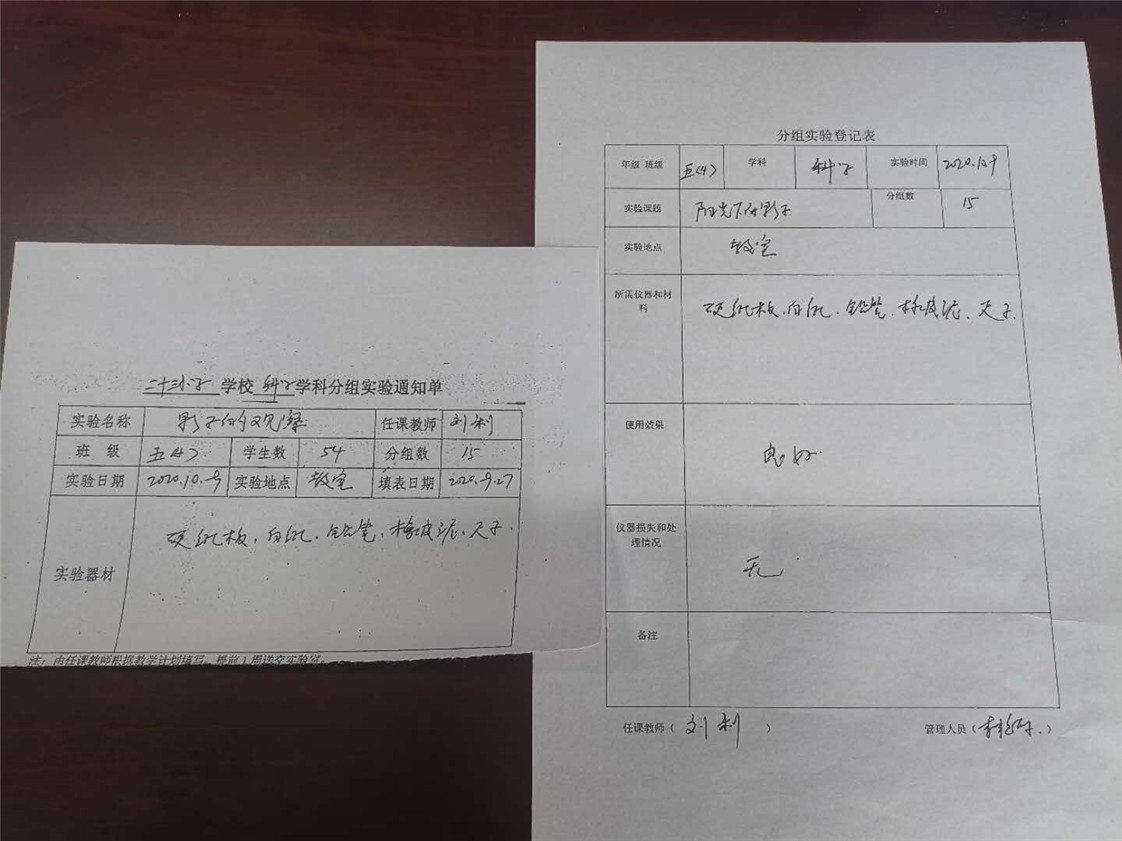 二十三小学 学校 科学学科分组实验通知单
实验名称 影子的观察 任课教师 刘利
班 级 五(4) 学生数 54 分组数 15
实验日期 2020.10.9 实验地点 教室 填表日期 2020.9.27
实验器材 硬纸板、白纸、铅笔、橡皮泥、尺子.
注：由任课教师根据教学计划填写，提前1周送交实验室。
分组实验登记表
年级 班级 五(4) 学科 科学 实验时间 2020.10.9
实验课题 阳光下的影子 分组数 15
实验地点 教室
所需仪器和材
料
硬纸板、白纸、铅笔、橡皮泥、尺子.
使用效果 良好.
仪器损失和处
理情况
无.
备注
任课教师（ 刘利 ） 管理人员（ ）